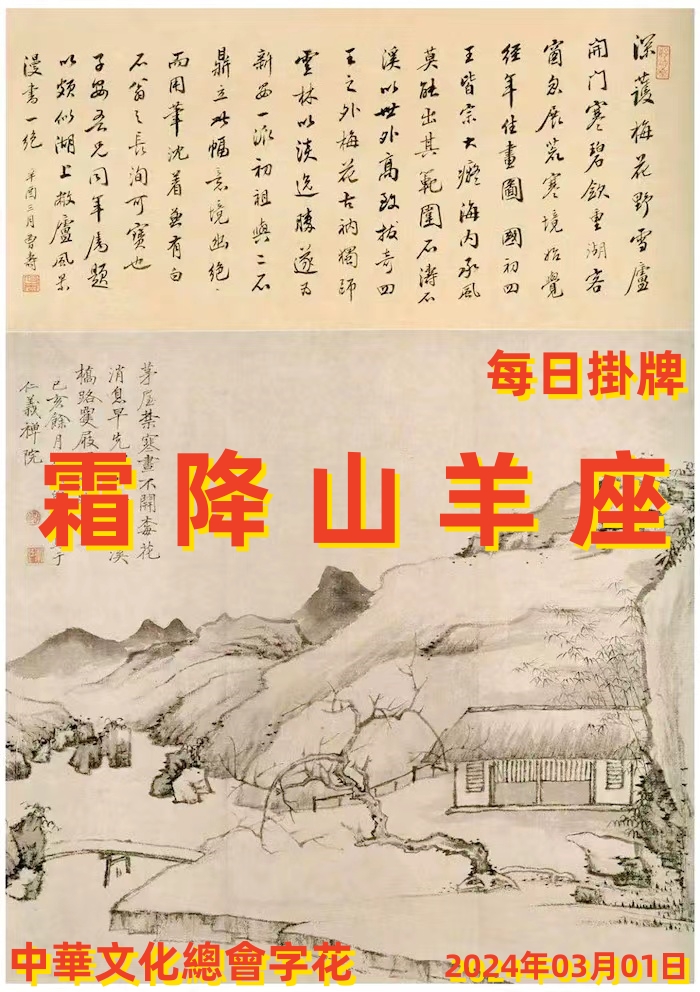 深護梅花野雪廬
開门寒碧歛重湖客
窗忽展荒寒境始覺
經年住畫圖 國初四
王皆宗大癡海內承風
莫能出其範圍石濤石
溪以世外高致拔奇四
王之外梅花古衲獨師
雲林以淡逸勝遂為
新安一派初祖與二石
鼎立此幅意境幽絕
而用筆沈著兼有白
石翁之長洵可寶也
子安吾兄同年屬題
以頗似湖上敝廬風景
漫書一絕 辛酉三月 曾壽
每日掛牌
茅屋禁寒晝不開 花
消息早先 溪
橋路
己亥餘月 于
仁義禪院
霜降山羊座
中華文化總會字花
2024年03月01日